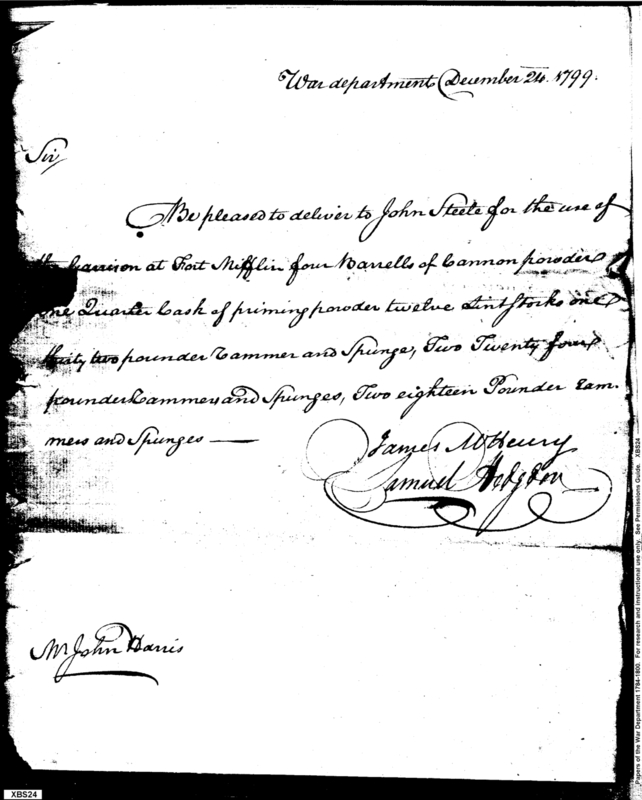 War department December 24. 1799.
Sir
Be pleased to deliver to John Steele for the use of
the Garrison at Fort Mifflin four Barrells of Cannon powder
one Quarter Cask of priming powder twelve Lintstocks one
thirty two pounder Rammer and Spunge, Two Twenty four
pounder Rammers and Spunges, Two eighteen Pounder Ram-
mers and Spunges —
James McHenry
Samuel Hodgdon
Mr John Harris
XBS24
Papers of the War Department 1784-1800. For research and instructional use only. See Permissions Guide. XBS24